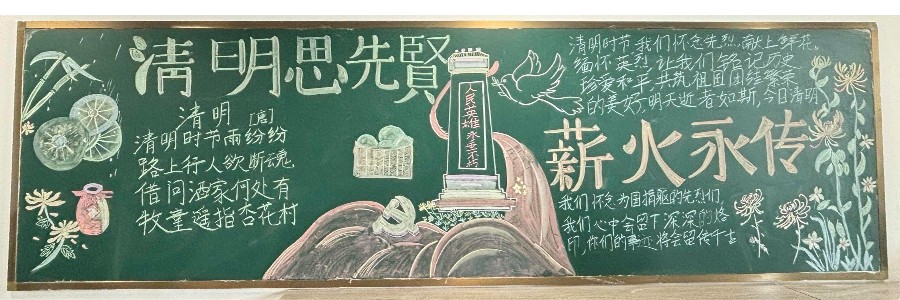 清明思先賢
清明
[唐]
清明时节雨纷纷
路上行人欲断魂
借问酒家何处有
牧童遥指杏花村
人民英雄永垂不朽
清明时节,我们怀念先烈,献上鲜花,
缅怀英烈,让我们铭记历史
珍爱和平,共筑祖国团结繁荣
的美好,明天逝者如斯,今日清明
薪火永传
我们怀念为国捐躯的先烈们,
我们心中会留下深深的烙
印,你们的事迹将会留传千古